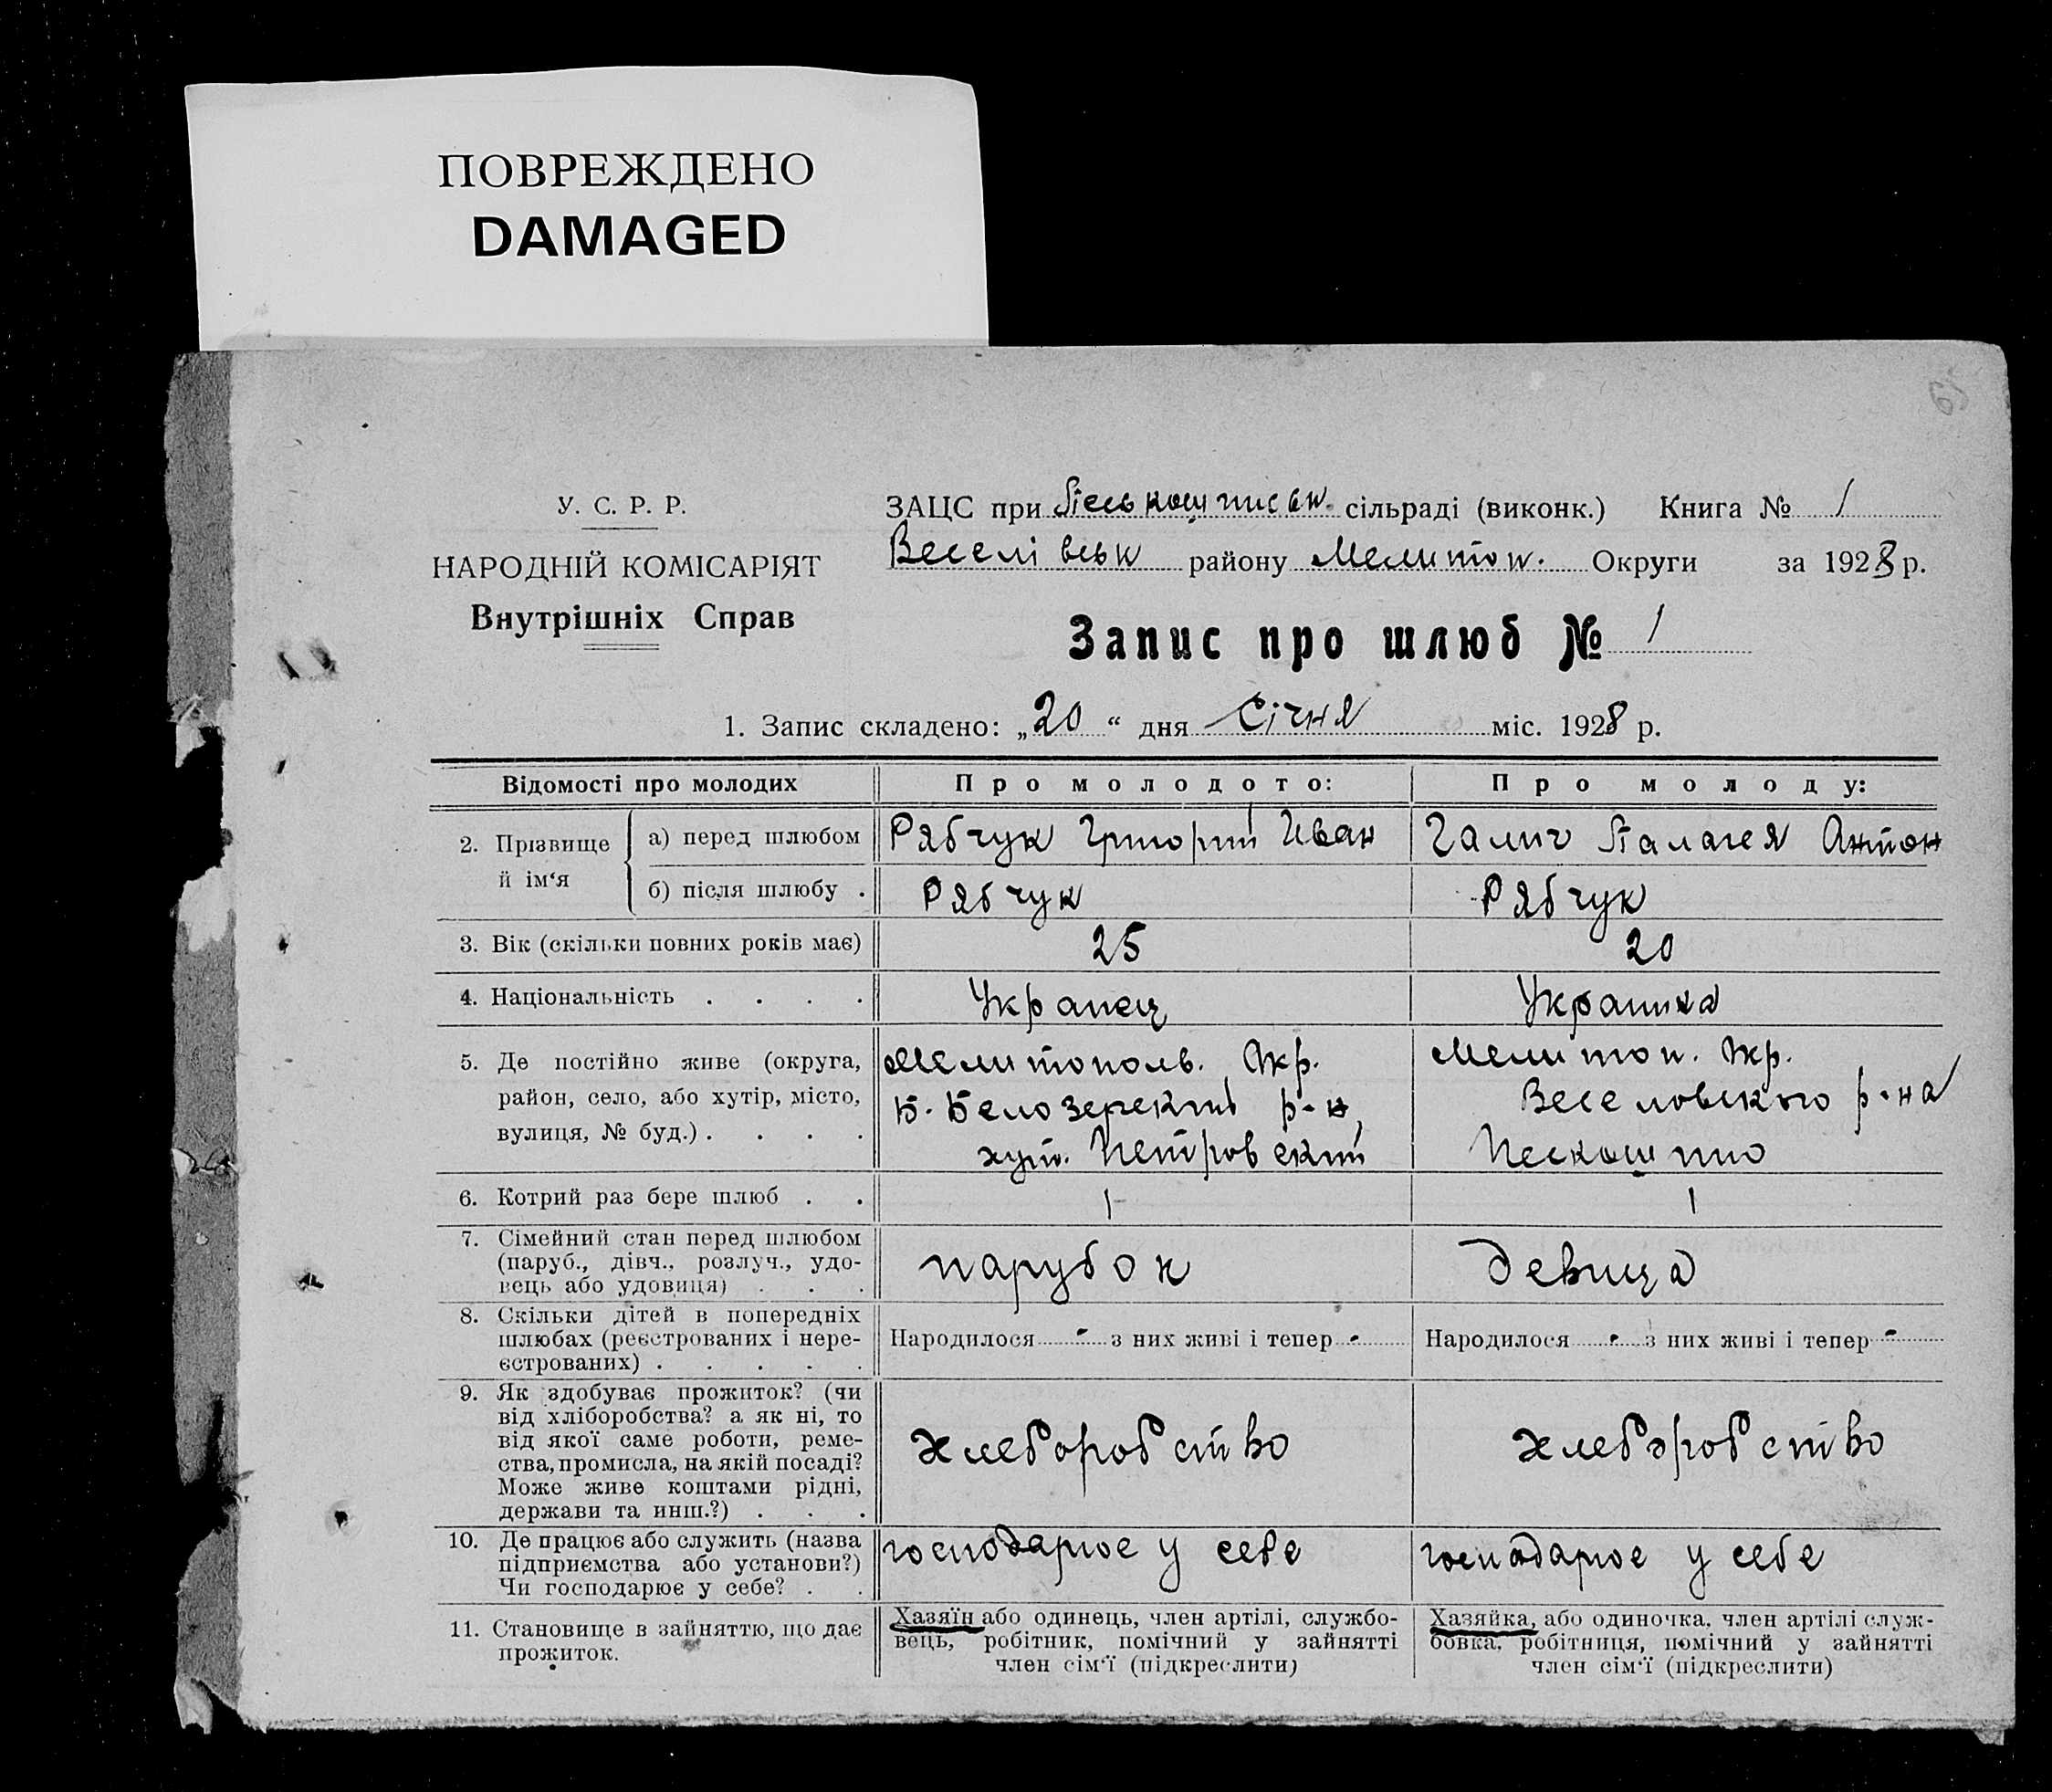 ПОВРЕЖДЕНО
DAMAGED
65
У. С. Р. Р.
НАРОДНІЙ КОМІСАРІЯТ
Внутрішніх Справ
ЗАЦС при сільраді (виконк.) Книга № 1
Веселівськ району Мелитоп. Округи за 1928 р.
Запис про шлюб № 1
1. Запис складено: „20“ дня Січня міс. 1928 р.
Відомості про молодих
Про молодого:
Про молоду:
2. Прізвище й ім‘я
а) перед шлюбом
Рябчук Григорий Иван
Галич Палагея Антон
б) після шлюбу .
Рябчук
Рябчук
3. Вік (скільки повних років має)
25
20
4. Національність . . . .
Украпец
Украинка
5. Де постійно живе (округа,
район, село, або хутір, місто,
вулиця, № буд.) . . . .
Мелитополь. Окр.
Б. Белозерский р-н,
хут. Петровский
Мелитоп. Окр.
Веселовского р-на
6. Котрий раз бере шлюб . .
1
1
7. Сімейний стан перед шлюбом
(паруб., дівч., розлуч., удо-
вець або удовиця) . . .
парубок
девица
8. Скільки дітей в попередніх
шлюбах (реєстрованих і нере-
єстрованих) . . . . .
Народилося - з них живі і тепер -
Народилося - з них живі і тепер -
9. Як здобуває прожиток? (чи
від хліборобства? а як ні, то
від якої саме роботи, реме-
ства, промисла, на якій посаді?
Може живе коштами рідні,
держави та инш.?) . . .
хлеборобство
хлеборобство
10. Де працює або служить (назва
підприємства або установи?)
Чи господарює у себе? . .
господарює у себе
господарює у себе
11. Становище в зайняттю, що дає
прожиток.
Хазяїн або одинець, член артілі, службо-
вець, робітник, помічний у зайнятті
член сім‘ї (підкреслити)
Хазяйка, або одиночка, член артілі служ-
бовка, робітниця, помічний у зайнятті
член сім‘ї (підкреслити)